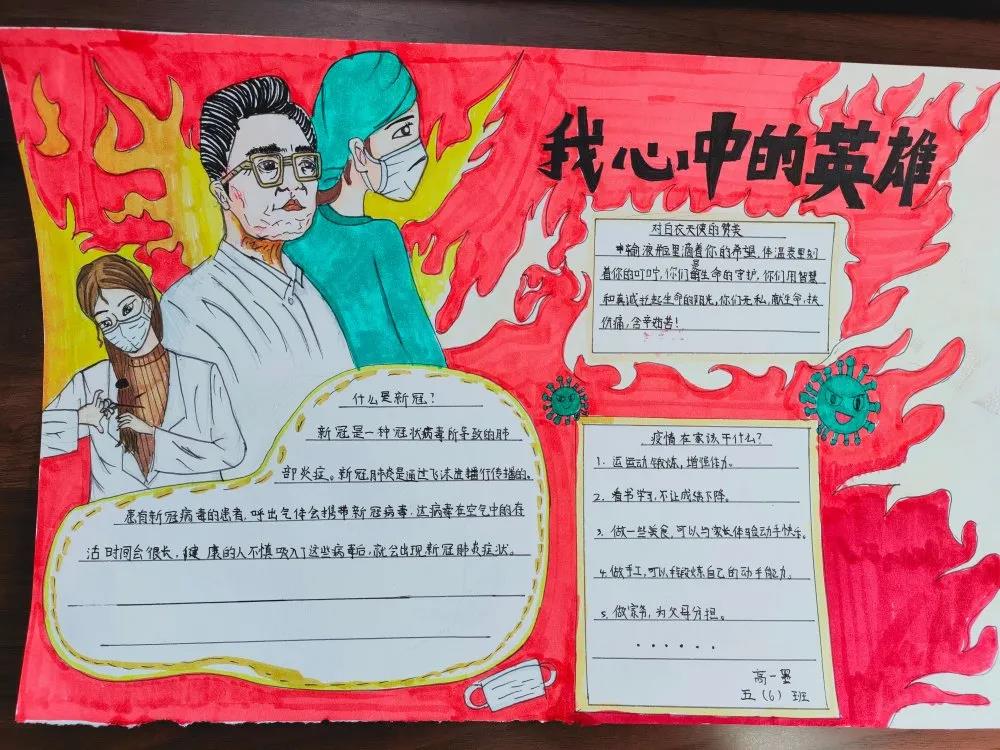 我心中的英雄
对白衣天使的赞美
输液瓶里滴着你的希望,体温表里刻
着你的叮咛,你们是生命的守护,你们用智慧
和真诚托起生命的阳光,你们无私,献生命,扶
伤痛,含辛茹苦!
什么是新冠?
新冠是一种冠状病毒所导致的肺
部炎症。新冠肺炎是通过飞沫进行传播的。
患有新冠病毒的患者,呼出气体会携带新冠病毒,这病毒在空气中的存
活时间会很长,健康的人不慎吸入了这些病毒后,就会出现新冠肺炎症状。
疫情在家该干什么?
1. 运动锻炼,增强体力。
2. 看书学习,不让成绩下降。
3. 做一些美食,可以与家长体验动手快乐。
4. 做手工,可以锻炼自己的动手能力。
5. 做家务,为父母分担。
······
高一墨
五(6)班